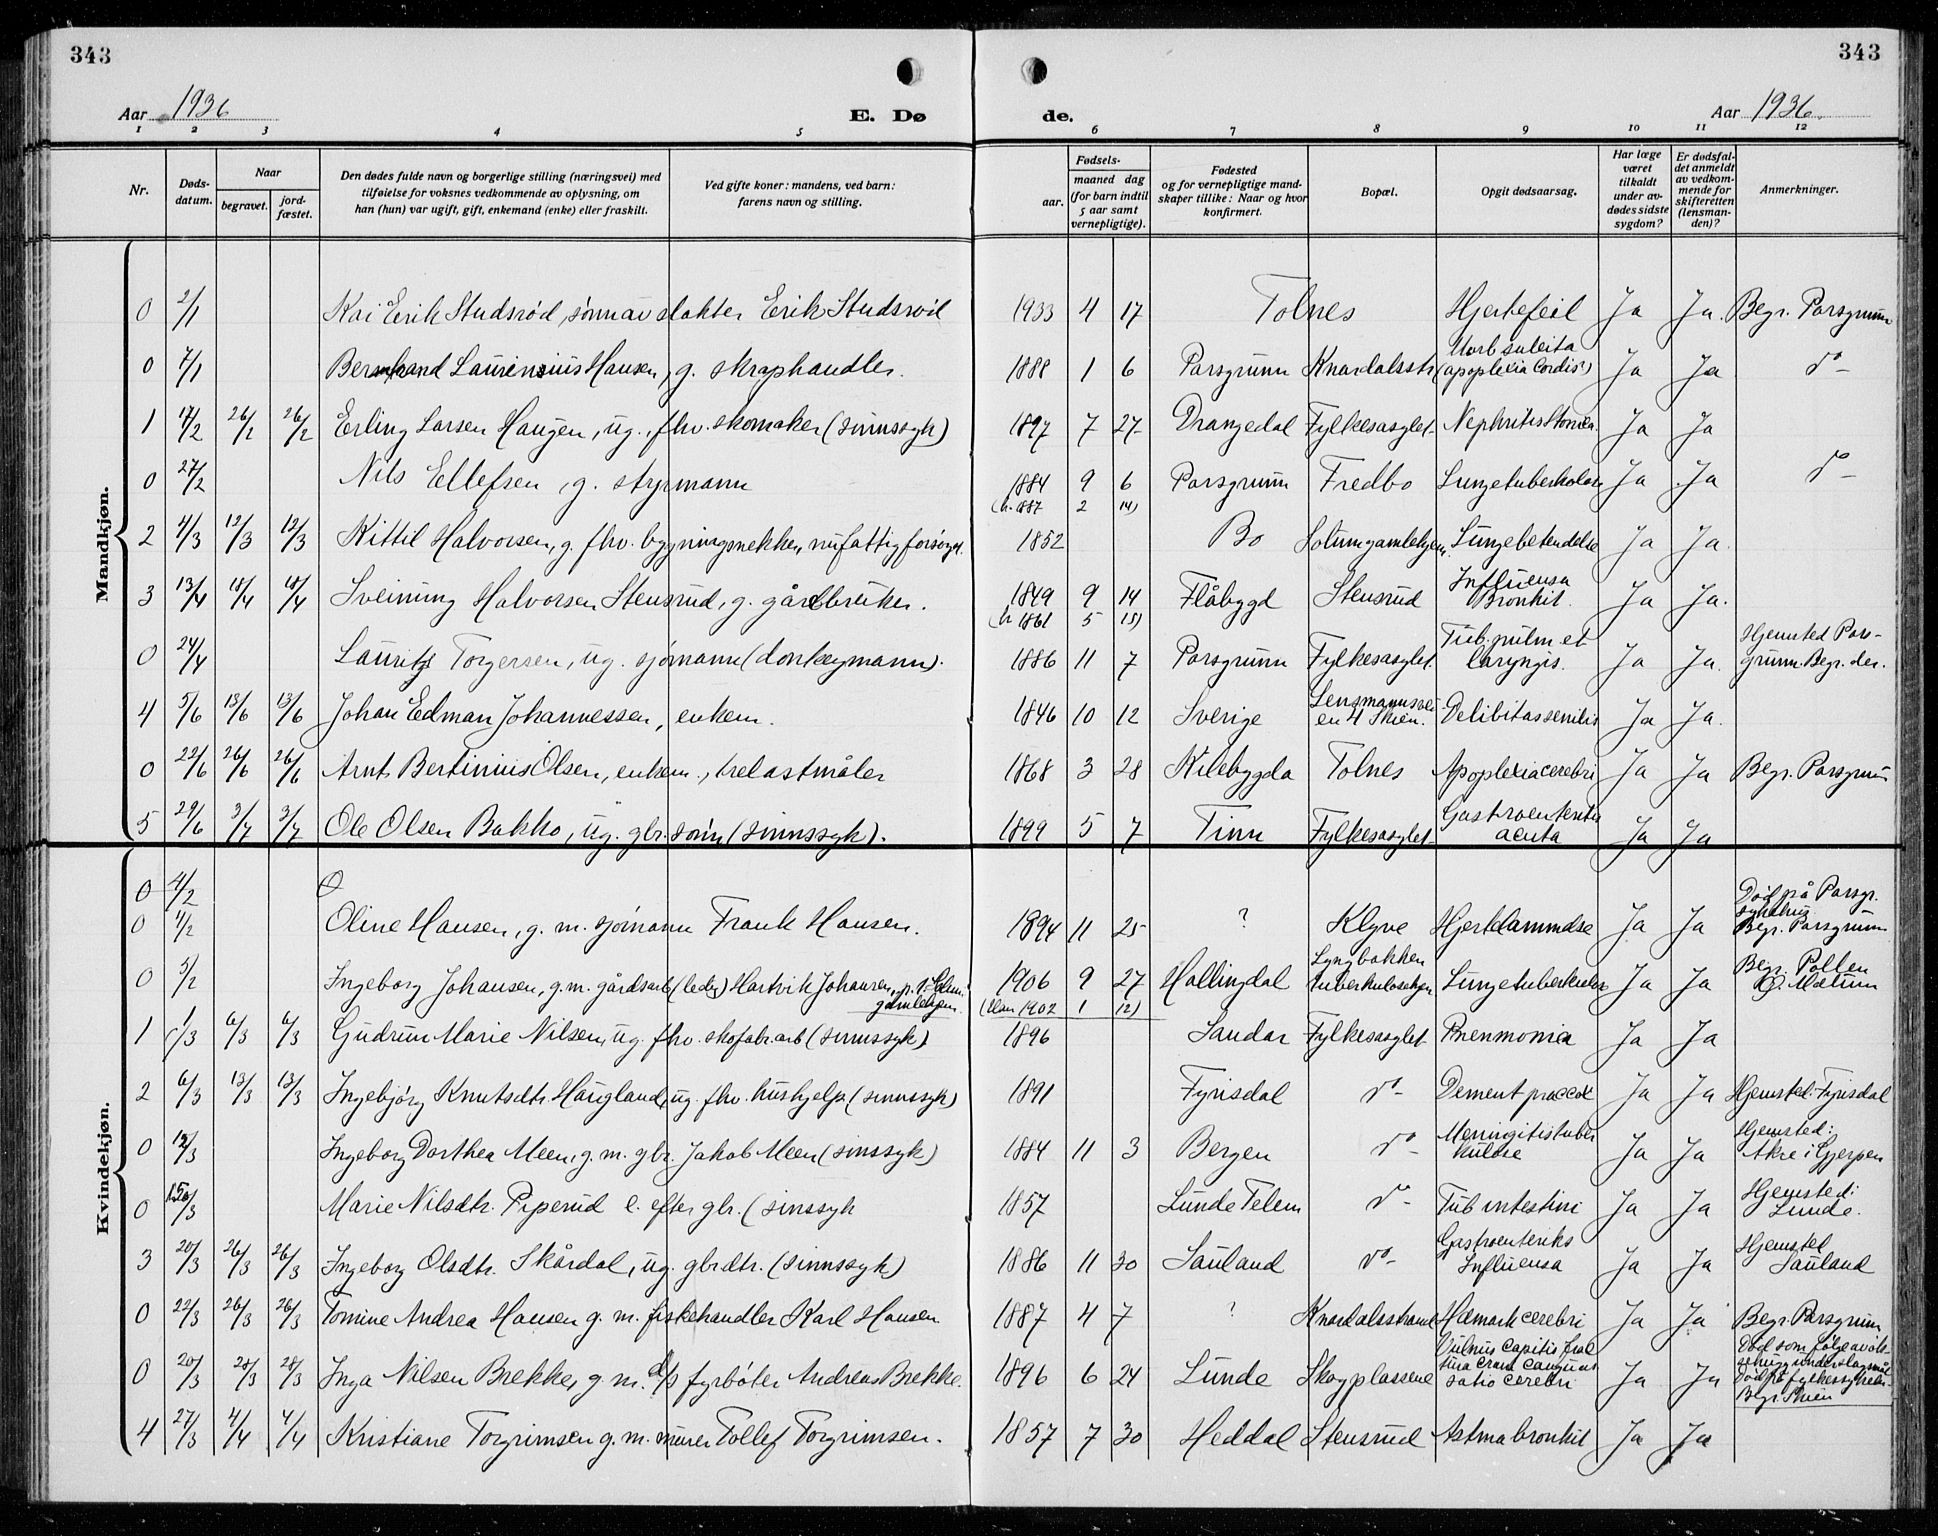 343
343
Aar 1936
E. Dø
de.
Aar 1936.
1 2 3 4 5 6 7 8 9 10 11 12
Nr.
Døds-
datum.
Naar
begravet.
jord-
fæstet.
Den dødes fulde navn og borgerlige stilling (næringsvei) med
tilføielse for voksnes vedkommende av oplysning, om
han (hun) var ugift, gift, enkemand (enke) eller fraskilt.
Ved gifte koner: mandens, ved barn:
farens navn og stilling.
Fødsels-
aar.
maaned dag
(for barn indtil
5 aar samt
vernepligtige).
Fødested
og for vernepligtige mand-
skaper tillike: Naar og hvor
konfirmert.
Bopæl.
Opgit dødsaarsag.
Har læge
været
tilkaldt
under av-
dødes sidste
sygdom?
Er dødsfal-
det anmeldt
av vedkom-
mende for
skifteretten
(lensman-
den)?
Anmerkninger.
Mandkjøn.
0 2/1 Kai Erik Studsrød, sønn av slakter Erik Studsrød 1933 4 17 Tolnes Hjertefeil Ja Ja. Begr. Porsgrunn
0 7/1 Bernhand Laurensius Hansen, g. skraphandler. 1888 1 6 Porsgrunn Knardalsstr Morb subita (apoplexia cordis?) Ja Ja do -
1 17/2 26/2 26/2 Erling Larsen Haugen, ug., fhv. skomaker (sinnssyk) 1897 7 27 Drangedal Fylkesasylet Nephritis Ja Ja
0 27/2 Nils Ellefsen, g. styrmann 1884 9 6 Porsgrunn Fredbo Lungetuberkolose Ja Ja do -
(h. 1887 2 14)
2 4/3 12/3 12/3 Kittil Halvorsen, g. fhv. bygningsnekker, nu fattigforsørget. 1852 Bø Solumgamlehjem. Lungebetendelse Ja Ja.
3 13/4 18/4 18/4 Sveinung Halvorsen Stensrud, g. gårdbruker. 1849 9 14 Flåbygd Stensrud Influensa Bronkit. Ja Ja.
(h 1861 5 15)
0 24/4 Lauritz Torgersen, ug. sjømann (donkeymann). 1886 11 7 Porsgrunn Fylkesasylet. Tub. pulm et laryngis. Ja Ja. Hjemsted Pors-
grunn. Begr. der.
4 5/6 13/6 13/6 Johan Edman Johannessen, enkem. 1846 10 12 Sverige Lensmannsvei-
en 4 Skien. Delibitas senilis Ja Ja.
0 22/6 26/6 26/6 Arnt Bertinius Olsen, enkem., trelastmåler 1868 3 28 Kilebygda Tolnes Apoplexia cerebri Ja Ja Begr. Porsgrunn
5 29/6 3/7 3/7 Ole Olsen Bakko, ug. gbr. sønn (sinnssyk). 1899 5 7 Tinn Fylkesasylet Gastroenteritis
acuta Ja Ja
Kvindekjøn.
0 4/2 O
0 1/2 Oline Hansen, g. m. sjømann Frank Hansen. 1894 11 25 ? Klyve Hjertelammelse Ja Ja Død på Porsgr.
sykehus
Begr. Porsgrunn
0 5/2 Ingeborg Johansen, g.m. gårdsarb (ledig) Hartvik Johansen, 1906 9 27 Hallingdal Lyngbakken
tuberkulosehjem Lungetuberkulose Ja Ja Begr. Pollen
Mælum
gamlehjem. (Han 1902 1 12)
1 1/3 6/3 6/3 Gudrun Marie Nilsen, ug. fhv. skofabr.arb (sinnssyk) 1896 Sandar Fylkesasylet Pnenmonia Ja Ja
2 6/3 13/3 13/3 Ingebjørg Knutsdtr. Haugland, ug. fhv. hushjelp. (sinnssyk) 1891 Fyrisdal do - Dement præcox Ja Ja Hjemsted: Fyrisdal
0 12/3 Ingeborg Dorthea Meen, g. m. gbr. Jakob Meen (sinssyk) 1884 11 3 Bergen do - Meningitis tuber
kuløse Ja Ja Hjemsted:
Akre i Gjerpen
0 15/3 Marie Nilsdtr. Piperud e. efter gbr. (sinssyk 1857 Lunde Telem do - Tub intestini Ja Ja Hjemsted:
Lunde.
3 20/3 26/3 26/3 Ingeborg Olsdtr. Skårdal, ug. gbrdtr. (sinnssyk) 1886 11 30 Sauland do - Gastroenteriks
Influensa Ja Ja Hjemsted
Sauland
0 22/3 26/3 26/3 Tomine Andrea Hansen g. m. fiskehandler Karl Hansen 1887 4 7 ? Knardalsstrand Hæmorh cerebri Ja Ja Begr. Porsgrunn
0 20/3 28/3 28/3 Inga Nilsen Brekke, g. m. d/s fyrbøter Andreas Brekke. 1896 6 24 Lunde Skogplassene Vulnus capitis frac
tura cranii
satio cerebri Ja Ja Død som følge av øk-
sehugg under slagsmål
Død på fylkessykehus.
Begr. Skien
4 27/3 4/4 4/4 Kristiane Torgrimsen g. m. murer Tollef Torgrimsen. 1857 7 30 Heddal Stensrud Astma bronkit Ja Ja